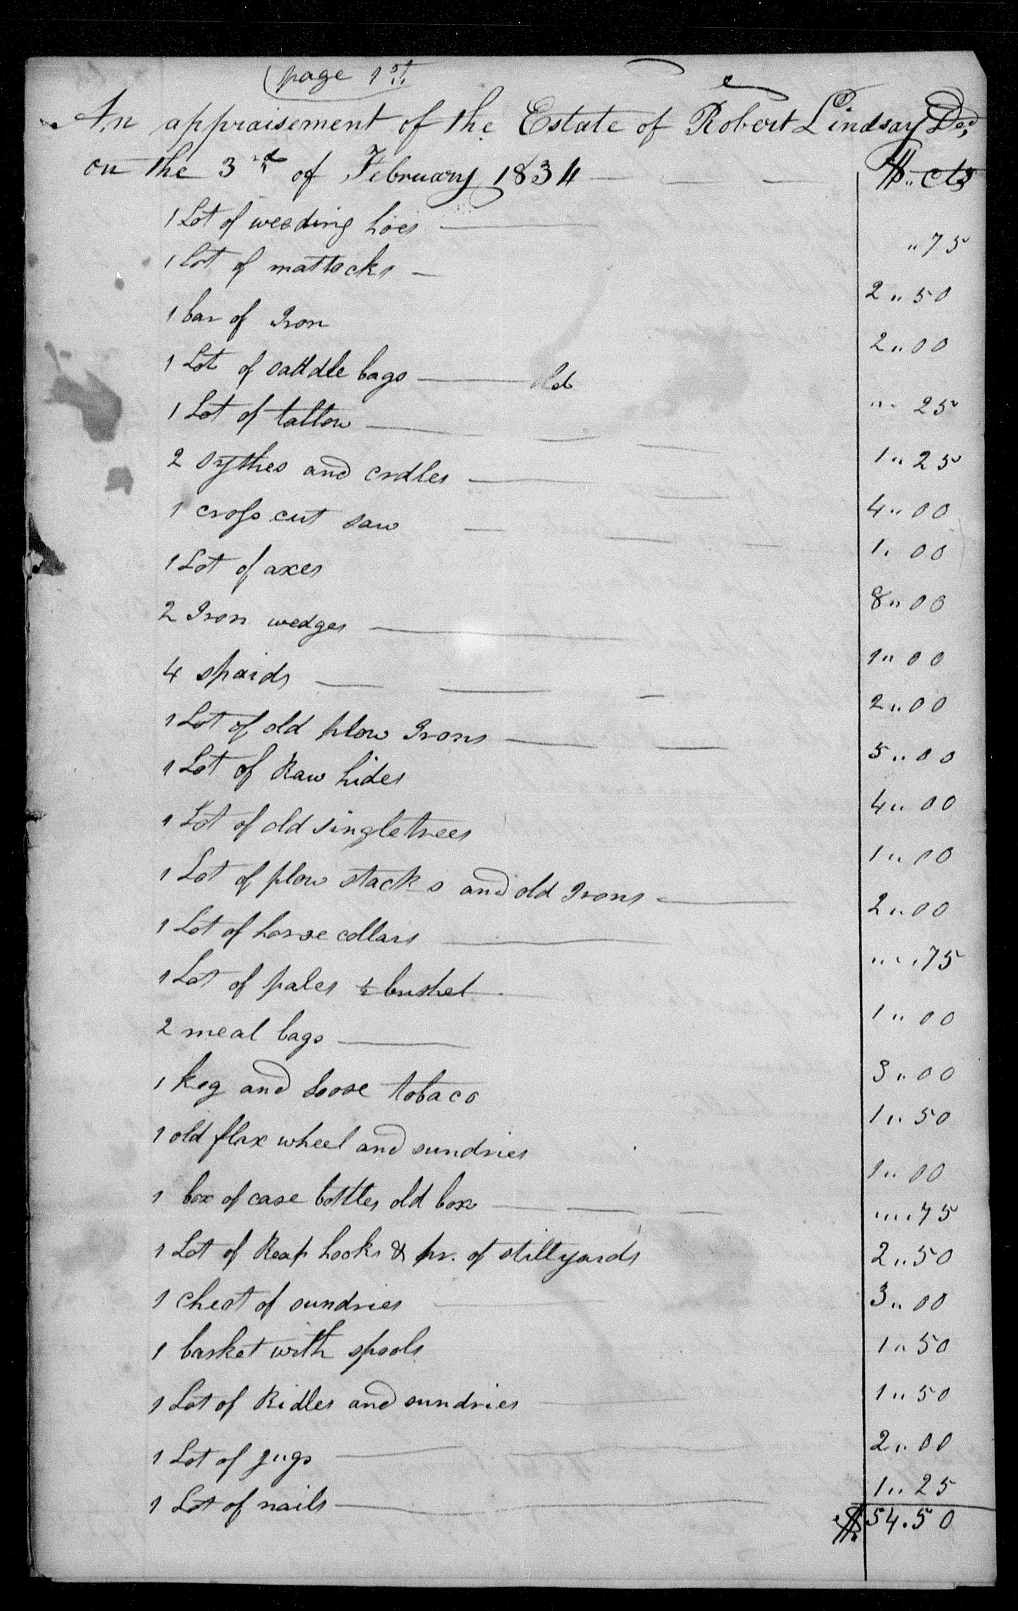 page 1st
An appraisement of the Estate of Robert Lindsay Decd
on the 3rd of February 1834 $ .. cts
1 Lot of weeding hoes .. 75
1 lot of mattocks 2 .. 50
1 bar of Iron 2 .. 00
1 Lot of saddle bags old .. .. 25
1 Lot of tallow 1 .. 25
2 sythes and cradles 4 .. 00
1 cross cut saw 1 .. 00
1 Lot of axes 8 .. 00
2 Iron wedges 1 .. 00
4 spaids 2 .. 00
1 Lot of old plow Irons 5 .. 00
1 Lot of Raw hides 4 .. 00
1 Lot of old singletrees 1 .. 00
1 Lot of plow stacks and old Irons 2 .. 00
1 Lot of horse collars .. .. 75
1 Lot of pales ½ bushel 1 .. 00
2 meal bags 3 .. 00
1 keg and loose tobaco 1 .. 50
1 old flax wheel and sundries 1 .. 00
1 box of case bottles old box .. .. 75
1 Lot of Reap hooks & pr. of stillyards 2 .. 50
1 chest of sundries 3 .. 00
1 basket with spools 1 .. 50
1 Lot of Ridles and sundries 1 .. 50
1 Lot of jugs 2 .. 00
1 Lot of nails 1 .. 25
$ 54.50